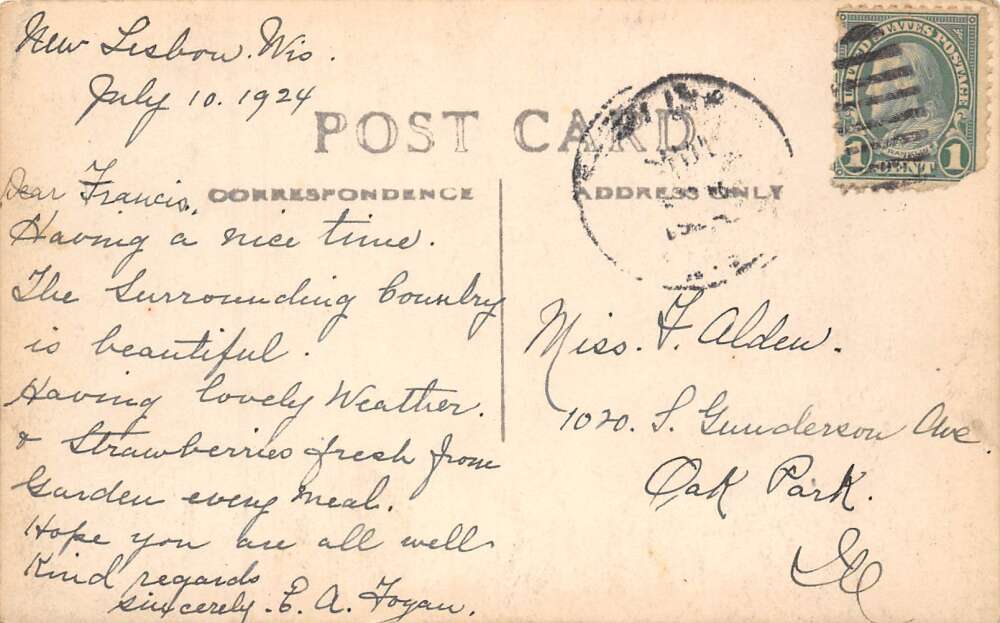 New Lisbon. Wis.
July 10. 1924
POST CARD
CORRESPONDENCE
ADDRESS ONLY
UNITED STATES POSTAGE
1 CENT 1
Dear Francis,
Having a nice time.
The Surrounding Country
is beautiful.
Having lovely Weather.
& Strawberries fresh from
Garden every meal.
Hope you are all well
Kind regards
Sincerely. E. A. Fogan.
Miss. F. Alden.
1020. S. Gunderson Ave
Oak Park.
Ill